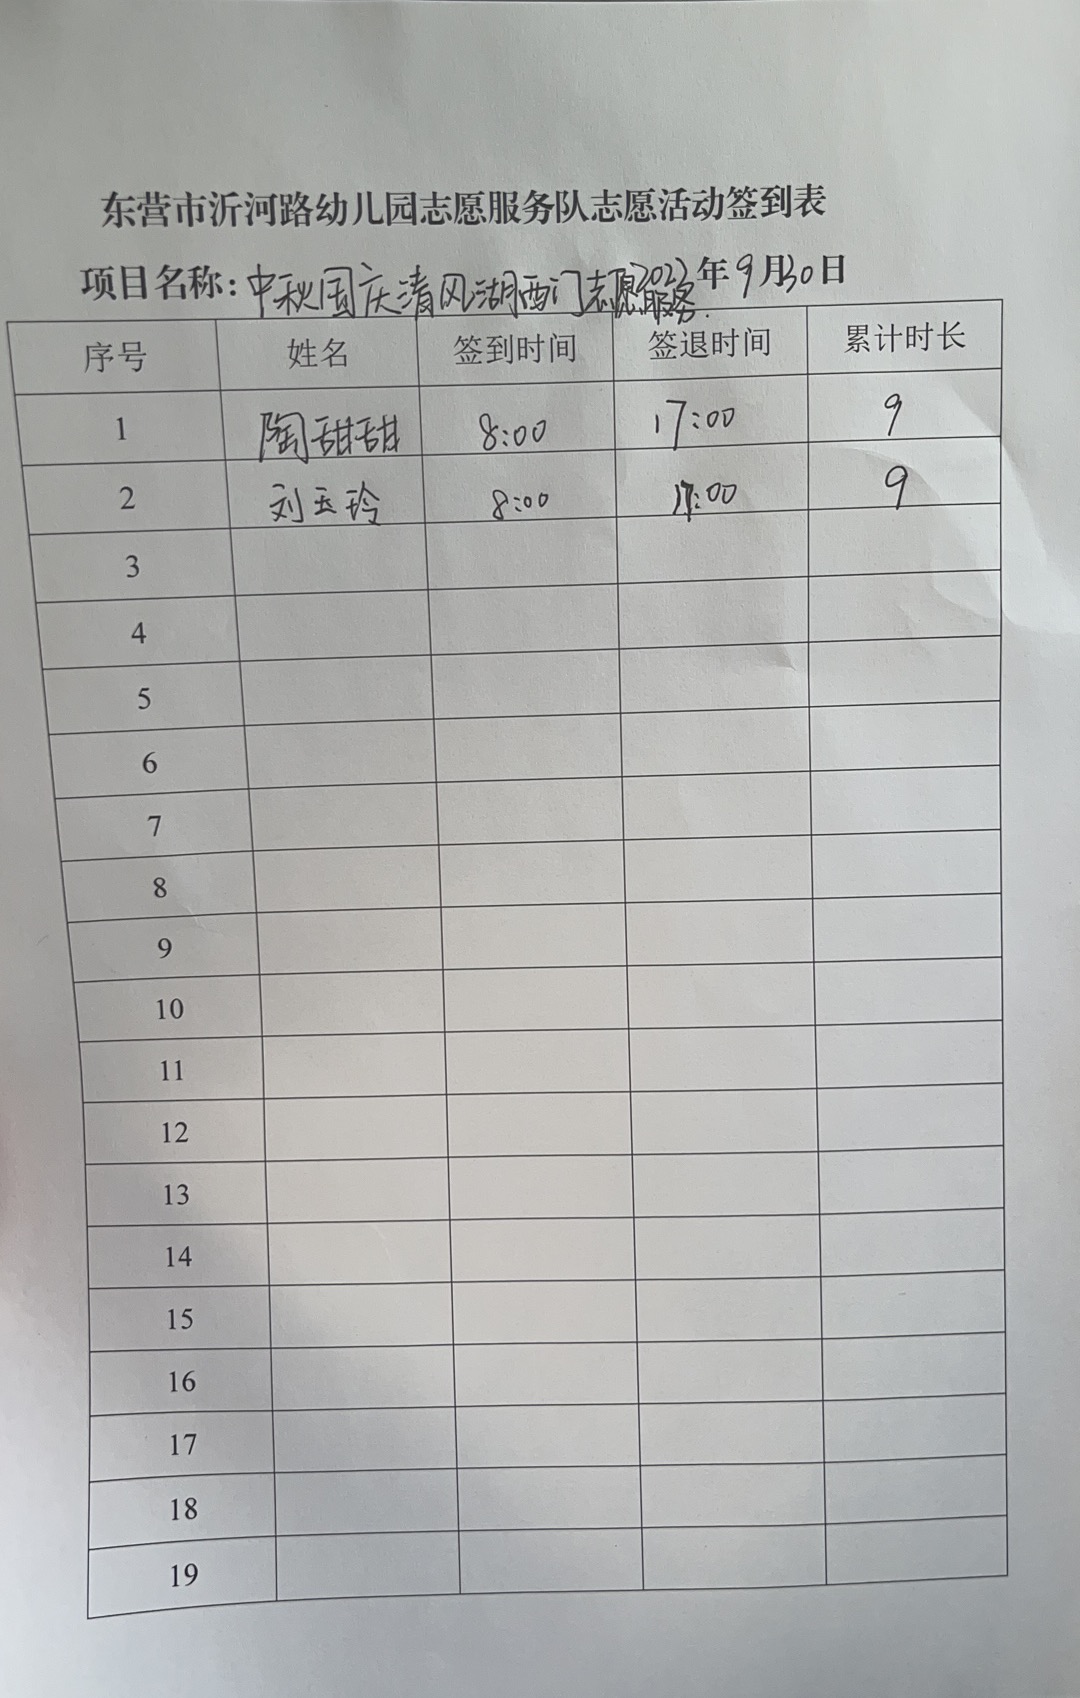 东营市沂河路幼儿园志愿服务队志愿活动签到表
项目名称:中秋国庆清风湖西门志愿服务. 2023年9月30日
序号 姓名 签到时间 签退时间 累计时长
1 陶甜甜 8:00 17:00 9
2 刘玉玲 8:00 17:00 9
3
4
5
6
7
8
9
10
11
12
13
14
15
16
17
18
19